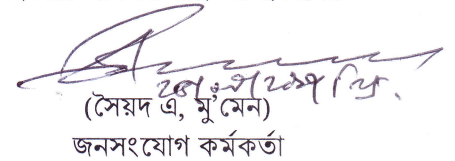 (সৈয়দ এ, মু'মেন)
জনসংযোগ কর্মকর্তা